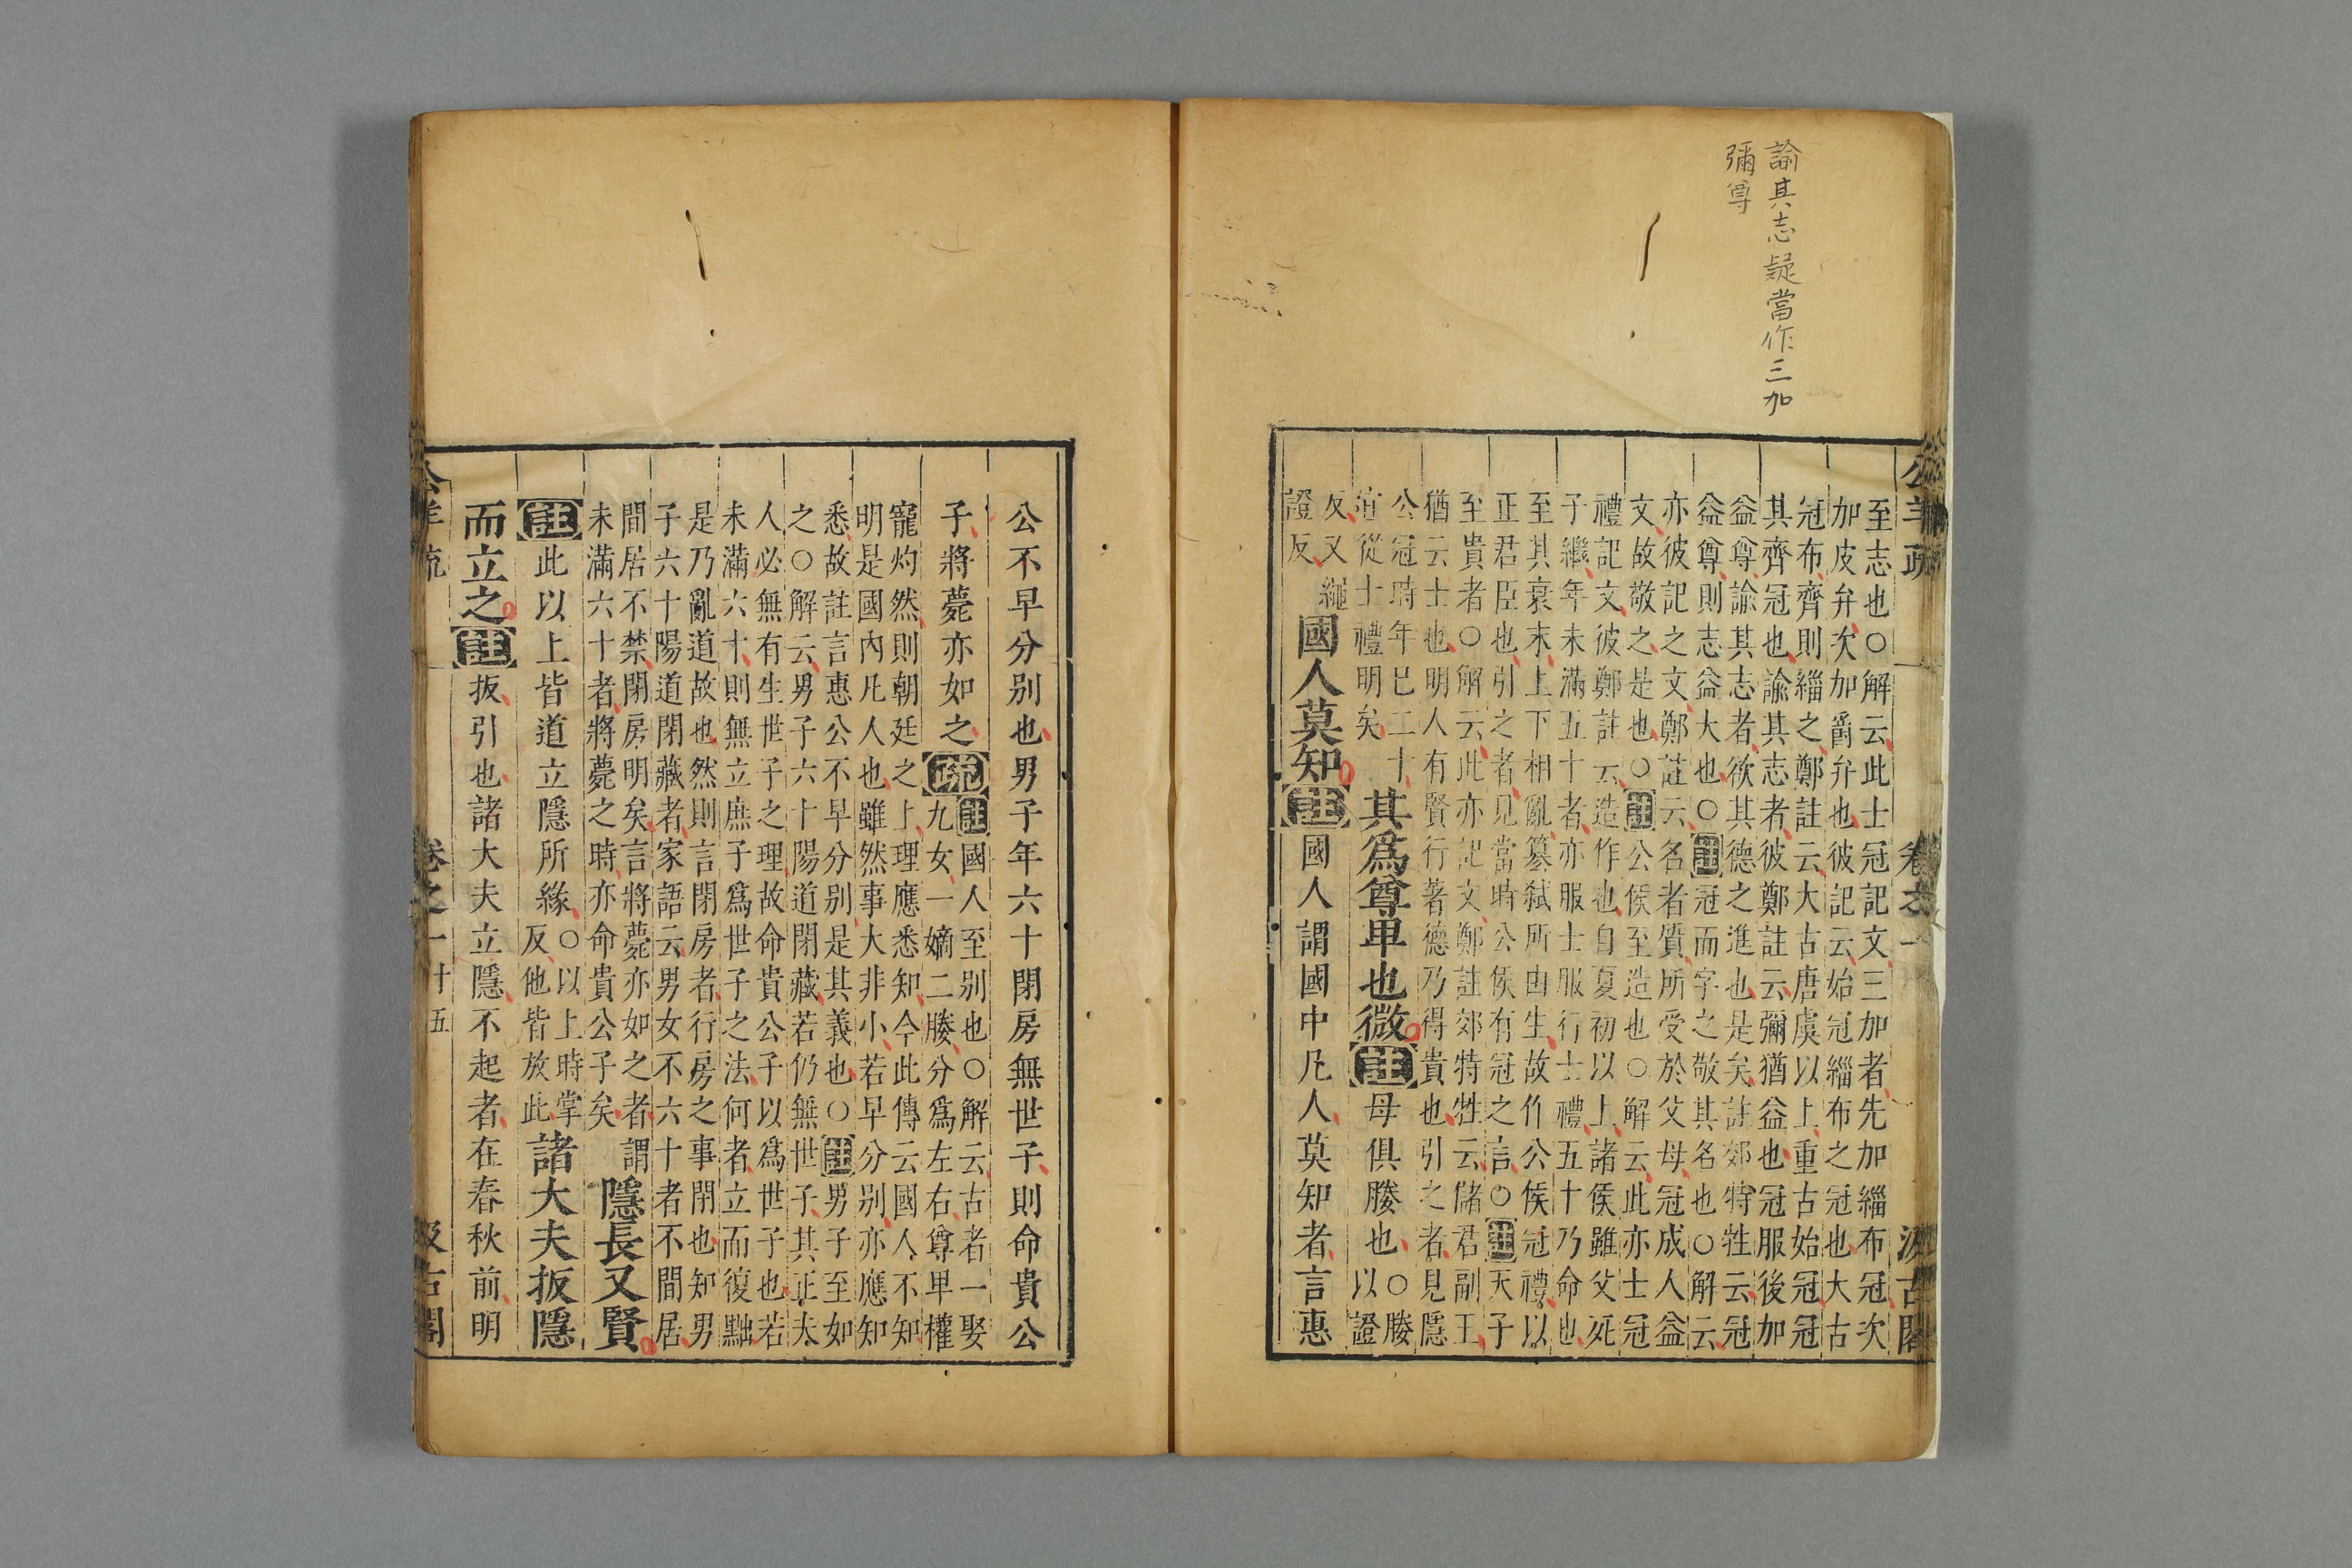 諭其志疑當作三加
彌尊
公羊疏 卷之一 汲古閣
至志也○解云此士冠記文三加者先加緇布冠次
加皮弁次加爵弁也彼記云始冠緇布之冠也大古
冠布齊則緇之鄭註云大古唐虞以上重古始冠冠
其齊冠也諭其志者彼鄭註云彌猶益也冠服後加
益尊諭其志者欲其德之進也是矣註郊特牲云冠
益尊則志益大也○註冠而字之敬其名也○解云
亦彼記之文鄭註云名者質所受於父母冠成人益
文故敬之是也○註公侯至造也○解云此亦士冠
禮記文彼鄭註云造作也自夏初以上諸侯雖父死
子繼年未滿五十者亦服士服行士禮五十乃命也
至其衰末上下相亂篡弒所由生故作公侯冠禮以
正君臣也引之者見當時公侯有冠之言○註天子
至貴者○解云此亦記文鄭註郊特牲云儲君副王
猶云士也明人有賢行著德乃得貴也引之者見隱
公冠時年巳二十
宜從士禮明矣
其爲尊卑也微註母俱媵也
○媵
以證
反又繩
證反
國人莫知註國人謂國中凡人莫知者言惠
公不早分别也男子年六十閉房無世子則命貴公
子將薨亦如之疏
註國人至别也○解云古者一娶
九女一嫡二媵分爲左右尊卑權
寵灼然則朝廷之上理應悉知今此傳云國人不知
明是國內凡人也雖然事大非小若早分别亦應知
悉故註言惠公不早分别是其義也○註男子至如
之○解云男子六十陽道閉藏若仍無世子其正夫
人必無有生世子之理故命貴公子以爲世子也若
未滿六十則無立庶子爲世子之法何者立而復黜
是乃亂道故也然則言閉房者行房之事閉也知男
子六十陽道閉藏者家語云男女不六十者不間居
間居不禁閉房明矣言將薨亦如之者謂
未滿六十者將薨之時亦命貴公子矣
隱長又賢
註此以上皆道立隱所緣
○以上時掌
反他皆放此
諸大夫扳隱
而立之註扳引也諸大夫立隱不起者在春秋前明
公羊疏 卷之一 十五 汲古閣